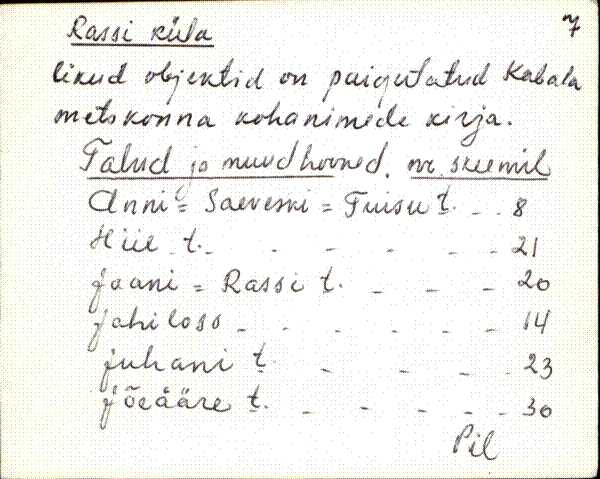 Rassi küla 7
likud objektid on paigutatud Kabala
metskonna kohanimede kirja.
Talud ja muud hooned. nr. skeemil
Anni = Saeveski = Tuisu t. - - 8
Hiie t. - - - - - - 21
Jaani = Rassi t. - - - 20
Jahiloss - - - - - 14
Juhani t. - - - - 23
Jõeääre t. - - - - - 30
Pil